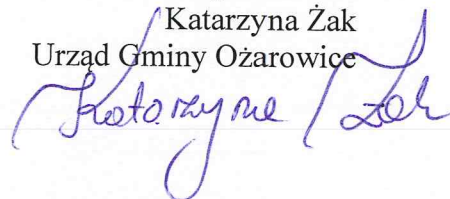 Katarzyna Żak
Urząd Gminy Ożarowice
Katarzyna Żak